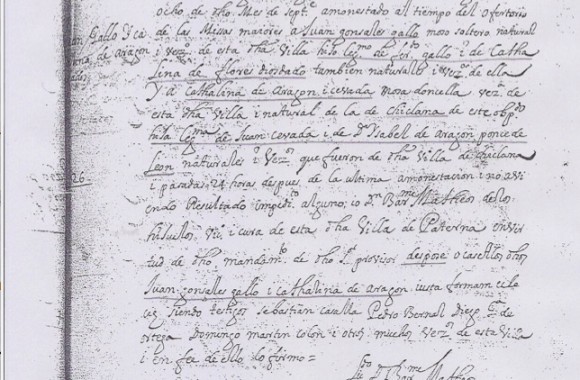 ocho de dho Mes de Septe. amonestado al tiempo del ofertorio
de las Missas maiores a Juan gonsales gallo moso soltero natural
i vezo. de esta dha Villa hijo legmo. de gallo i de Catha
lina de flores diordado tambien naturalles i vezos. de ella
Y a Cathalina de Aragon i cevada mosa donsella veza. de
esta dha Villa i natural de la de chiclana de este obpdo
hija legma. de Juan Cevada i de Da. Ysabell de Aragon ponce de
Leon naturalles i Vezos. que fueron de dha Villa de chiclana
26. i pasadas 24 horas despues de la ultima amonestacion i no avi
endo Resultado impedimto. alguno; io Dn. Barme. Matheos de los
i cura de esta dha Villa de Paterna en vir
tud de dho. mandamto. de dho Sr. provisor despose o casé a los dhos
Juan gonsalles gallo i cathalina de Aragon iusta formam ecle
siendo testigos Sebastian Casulla Pedro Bernal Diego Ga. de
ortega Domingo martin colon i otros muchos vezos. de esta Villa
i en fee de ello lo firmo =
Dn. Barme. Matheos